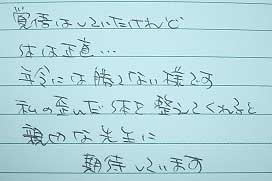 覚悟はしていたけれど
体は正直…
年令には勝てない様です
私の歪んだ体を整えてくれると
親切な先生に
期待しています